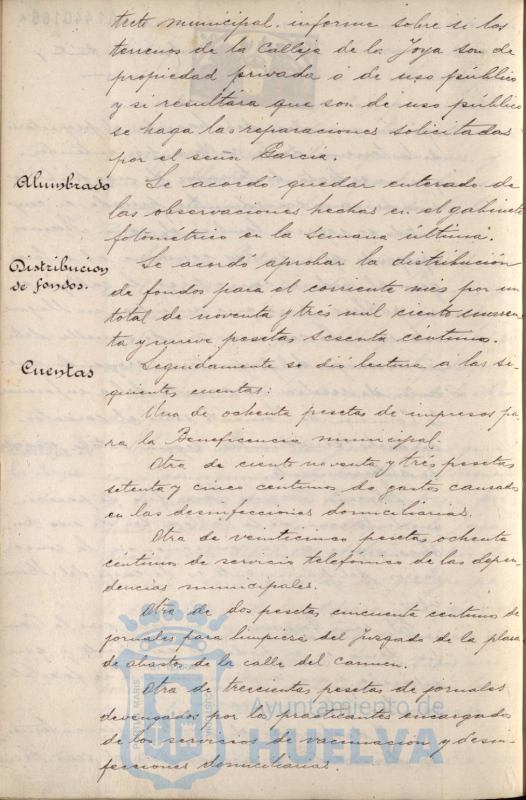 tecto municipal informe sobre si los
terrenos de la Calleja de la Joya son de
propiedad privada ó de uso público
y si resultára que son de uso público
se haga las reparaciones solicitadas
por el señor García.
Alumbrado
Se acordó quedar enterado de
las observaciones hechas en el gabinete
fotométrico en la semana última.
Distribución
de fondos.
Se acordó aprobar la distribución
de fondos para el corriente mes por un
total de noventa y tres mil ciento
ta y nueve pesetas sesenta céntimos.
Cuentas
Seguidamente se dió lectura á las si-
guientes cuentas:
Una de ochenta pesetas de impresos pa
ra la Beneficencia municipal.
Otra de ciento noventa y tres pesetas
setenta y cinco céntimos de gastos causados
en las desinfecciones domiciliarias.
Otra de veinticinco pesetas ochenta
céntimos de servicio telefónico de las depen-
dencias municipales.
Otra de dos pesetas cincuenta céntimos de
jornales para limpieza del Juzgado de la plaza
de abastos de la calle del Carmen.
Otra de trescientas pesetas de jornales
devengados por los practicantes encargados
de los servicios de vacunación y desin-
fecciones domiciliarias.
Ayuntamiento de
HUELVA